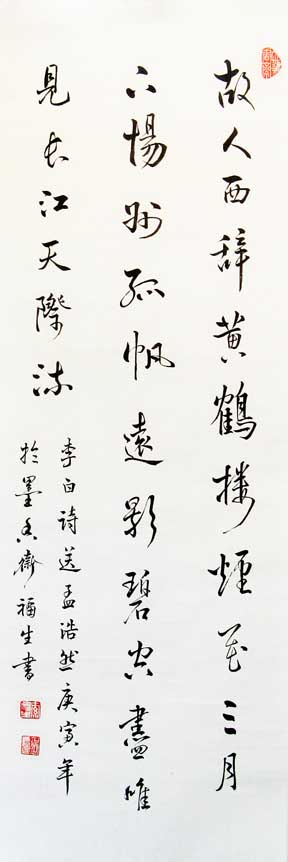 故人西辞黄鶴楼煙花三月
下揚州孤帆遠影碧空盡唯
見长江天際流
李白詩送孟浩然庚寅年
於墨香齋福生書